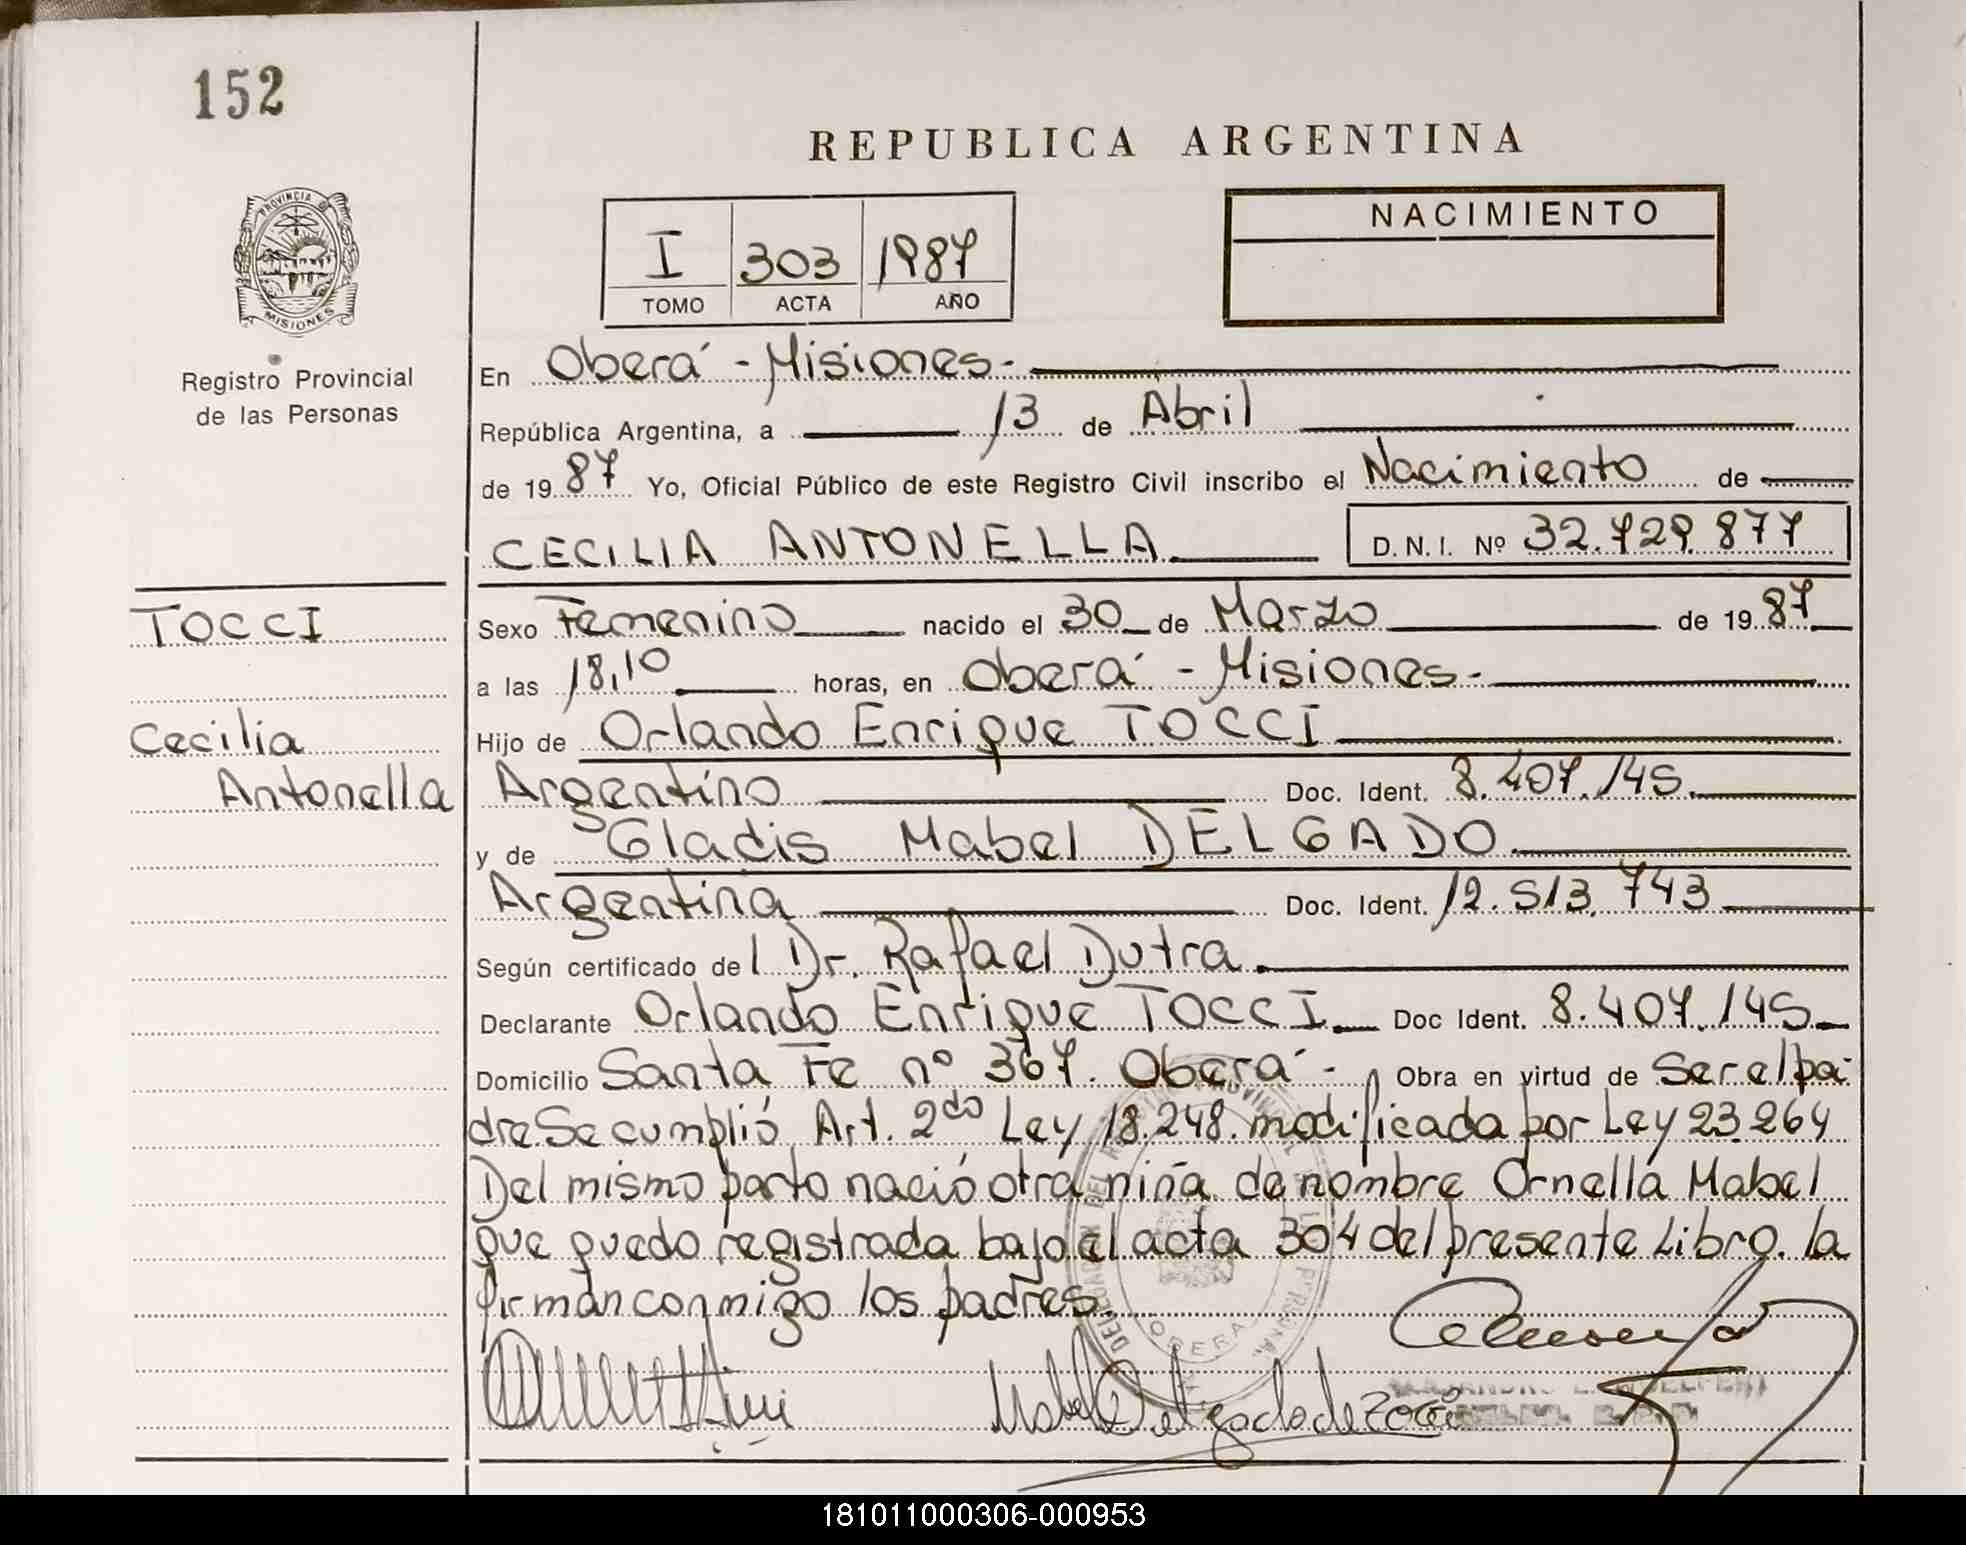 152
REPUBLICA ARGENTINA
PROVINCIA DE
MISIONES
Registro Provincial
de las Personas
I 303 1987
TOMO ACTA AÑO
NACIMIENTO
En Oberá - Misiones-
República Argentina, a 13 de Abril
de 1987 Yo, Oficial Público de este Registro Civil inscribo el Nacimiento de
CECILIA ANTONELLA D.N.I. Nº 32.729.877
TOCCI
Cecilia
Antonella
Sexo Femenino nacido el 30 de Marzo de 1987
a las 18,10 horas, en Oberá - Misiones-
Hijo de Orlando Enrique TOCCI
Argentino Doc. Ident. 8.407.145.
y de Gladis Mabel DELGADO
Argentina Doc. Ident. 12.513.743
Según certificado del Dr. Rafael Dutra
Declarante Orlando Enrique TOCCI Doc Ident. 8.407.145
Domicilio Santa Fe nº 367. Oberá - Obra en virtud de Ser el pa-
dre Se cumplió Art. 2do Ley 18.248. modificada por Ley 23.264
Del mismo parto nació otra niña de nombre Ornella Mabel
que quedo registrada bajo el acta 304 del presente Libro. la
firman conmigo los padres.
OBERA
Mabel Delgado de Tocci
181011000306-000953